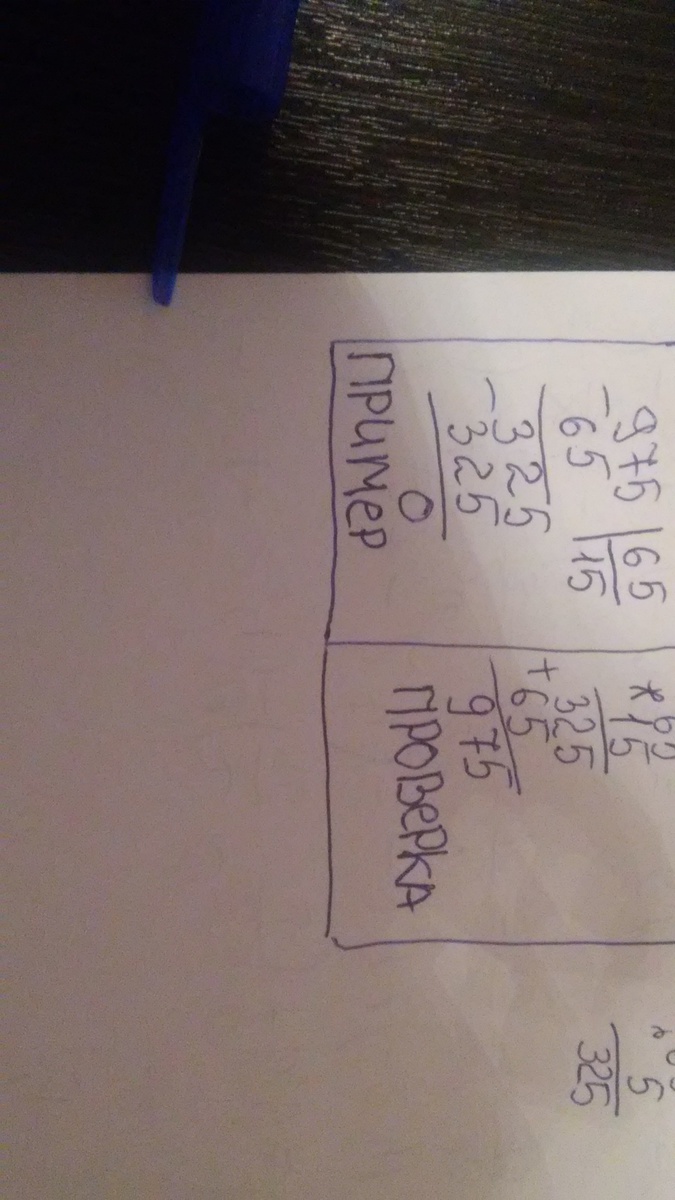 - 975 | 65
65 | 15
- 325
325
0
ПРИМЕР
* 65
15
325
+ 65
975
ПРОВЕРКА
5
325